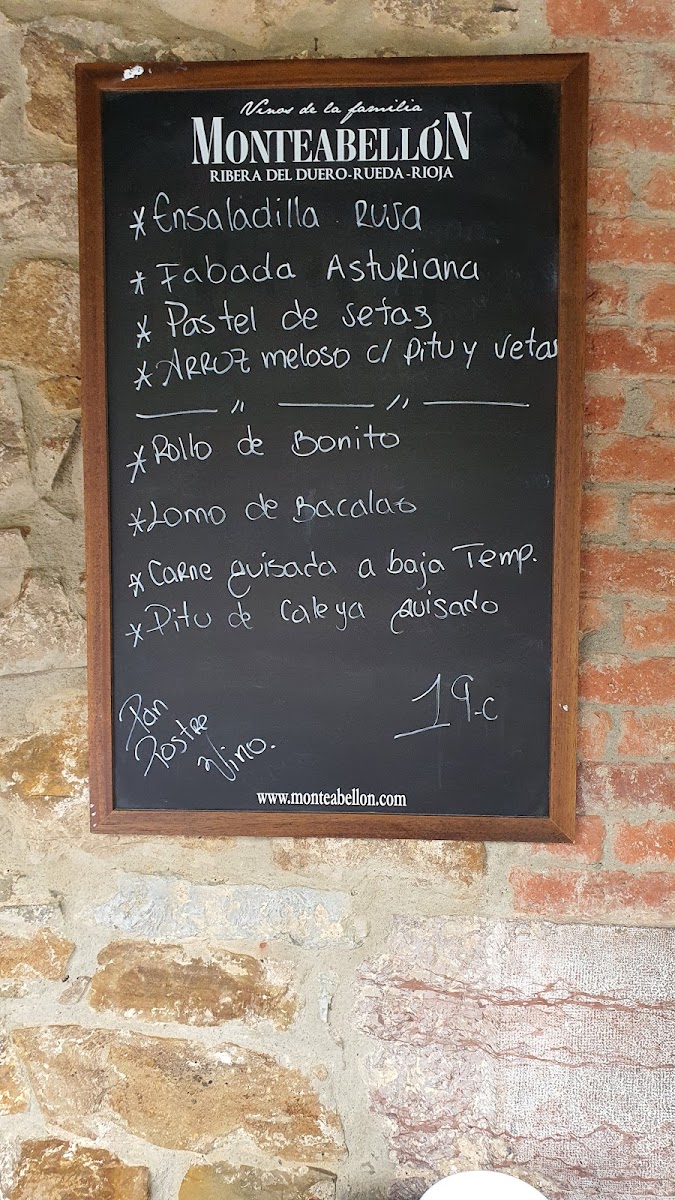 Vinos de la familia
MONTEABELLÓN
RIBERA DEL DUERO-RUEDA-RIOJA
* Ensaladilla RUSA
* Fabada ASTURIANA
* Pastel de setas
* ARROZ meloso c/ pitu y vetas
— " — " —
* Rollo de Bonito
* Lomo de Bacalao
* CARNE guisada a baja Temp.
* Pitu de Caleya guisado
19.-€
Pan
Postre
Vino.
www.monteabellon.com